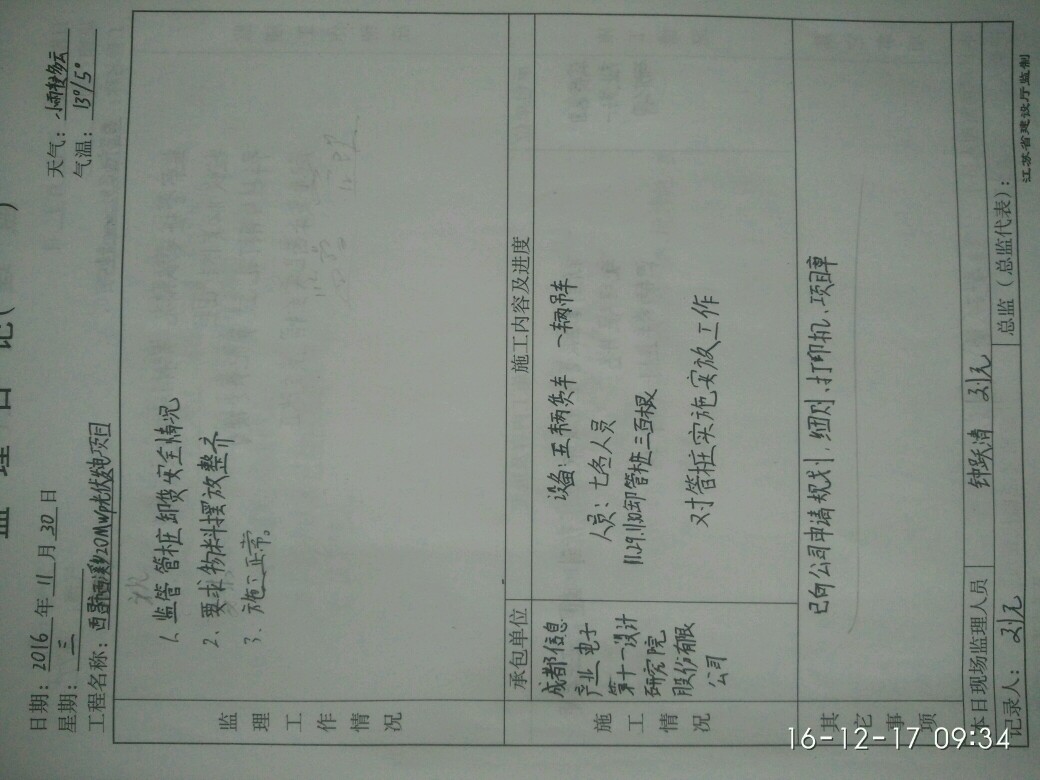 监 理 日 记（ ）
日期：2016 年 11 月 30 日
星期：三
天气：小雨转多云
气温：13°/5°
工程名称：20MWp光伏发电项目
监理工作情况
1、监管管桩卸货安全情况
2、要求物料摆放整齐
3、施工正常。
施工情况
承包单位
施工内容及进度
成都信息
产业电子
第十一设计
研究院
股份有限
公司
设备：五辆货车 一辆吊车
人员：七名人员
11.29.11.30卸管桩三百根
对管桩实施安放工作
其它事项
已向公司申请规划、细则、打印机、项目章
本日现场监理人员
钟跃清 刘元
记录人：刘元
总监（总监代表）：
江苏省建设厅监制
16-12-17 09:34